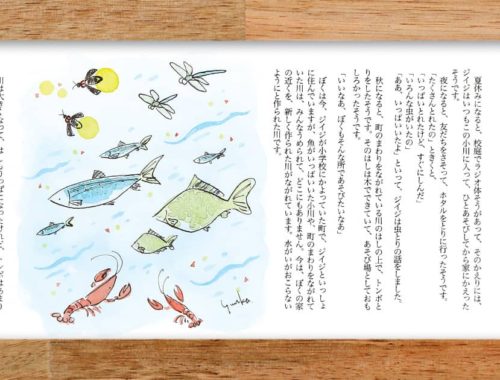 夏休みになると、校庭でラジオ体そうがあって、そのかえりには、
ジイジはいつもこの小川に入って、ひとあそびしてから家にかえった
そうです。
夜になると、友だちをさそって、ホタルをとりに行ったそうです。
「たくさんとれたの」ときくと、
「いっぱいとれたけど、すぐにしんだ」
「いろんな虫がいたの」
「ああ、いっぱいいたよ」といって、ジイジは虫とりの話をしました。
秋になると、町のまわりをながれている川のはしの上で、トンボと
りをしたそうです。そのはしは木でできていて、あそび場としておも
しろかったそうです。
「いいなあ、ぼくもそんな所であそびたいなあ」
ぼくは今、ジイジが小学校にかよっていた町で、ジイジといっしょ
に住んでいますが、魚がいっぱいいた小川や、町のまわりをながれて
いた川は、みんなうめられて、どこにもありません。今は、ぼくの家
の近くを、新しく作られた川がながれています。水がいがおこらない
ようにと作られた川です。